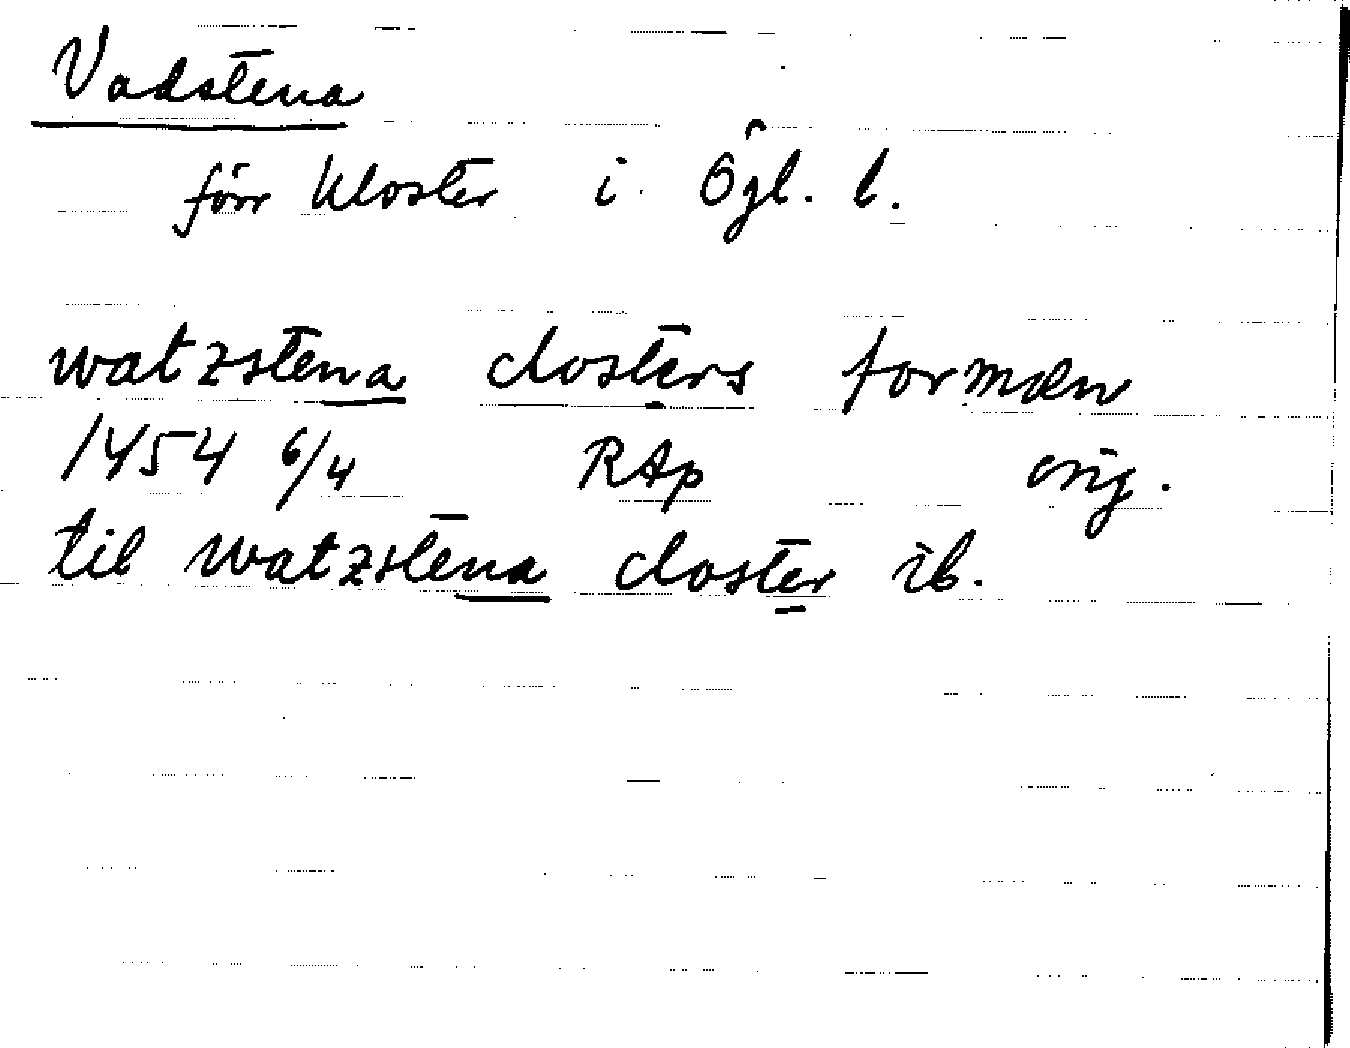 Vadstena
förr kloster i Ögl. l.
watzstena closters formæn
1454 6/4 RAp orig.
til watzstena closter ib.